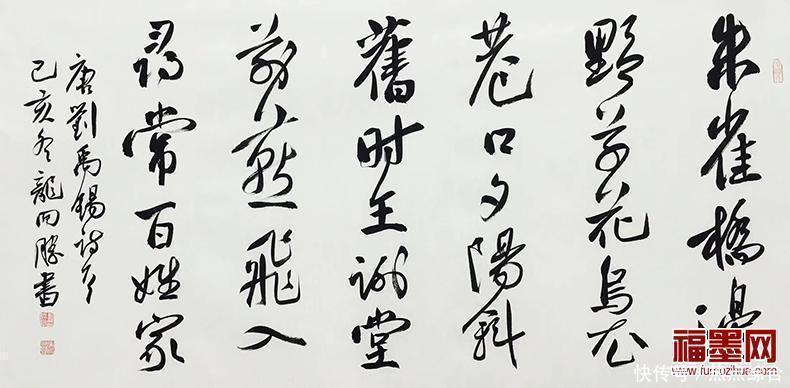 朱雀橋邊
野草花烏衣
巷口夕陽斜
舊时王謝堂
前燕飛入
尋常百姓家
唐劉禹錫詩
己亥冬龍開勝書
福墨网
www.fumozihua.com
快传号